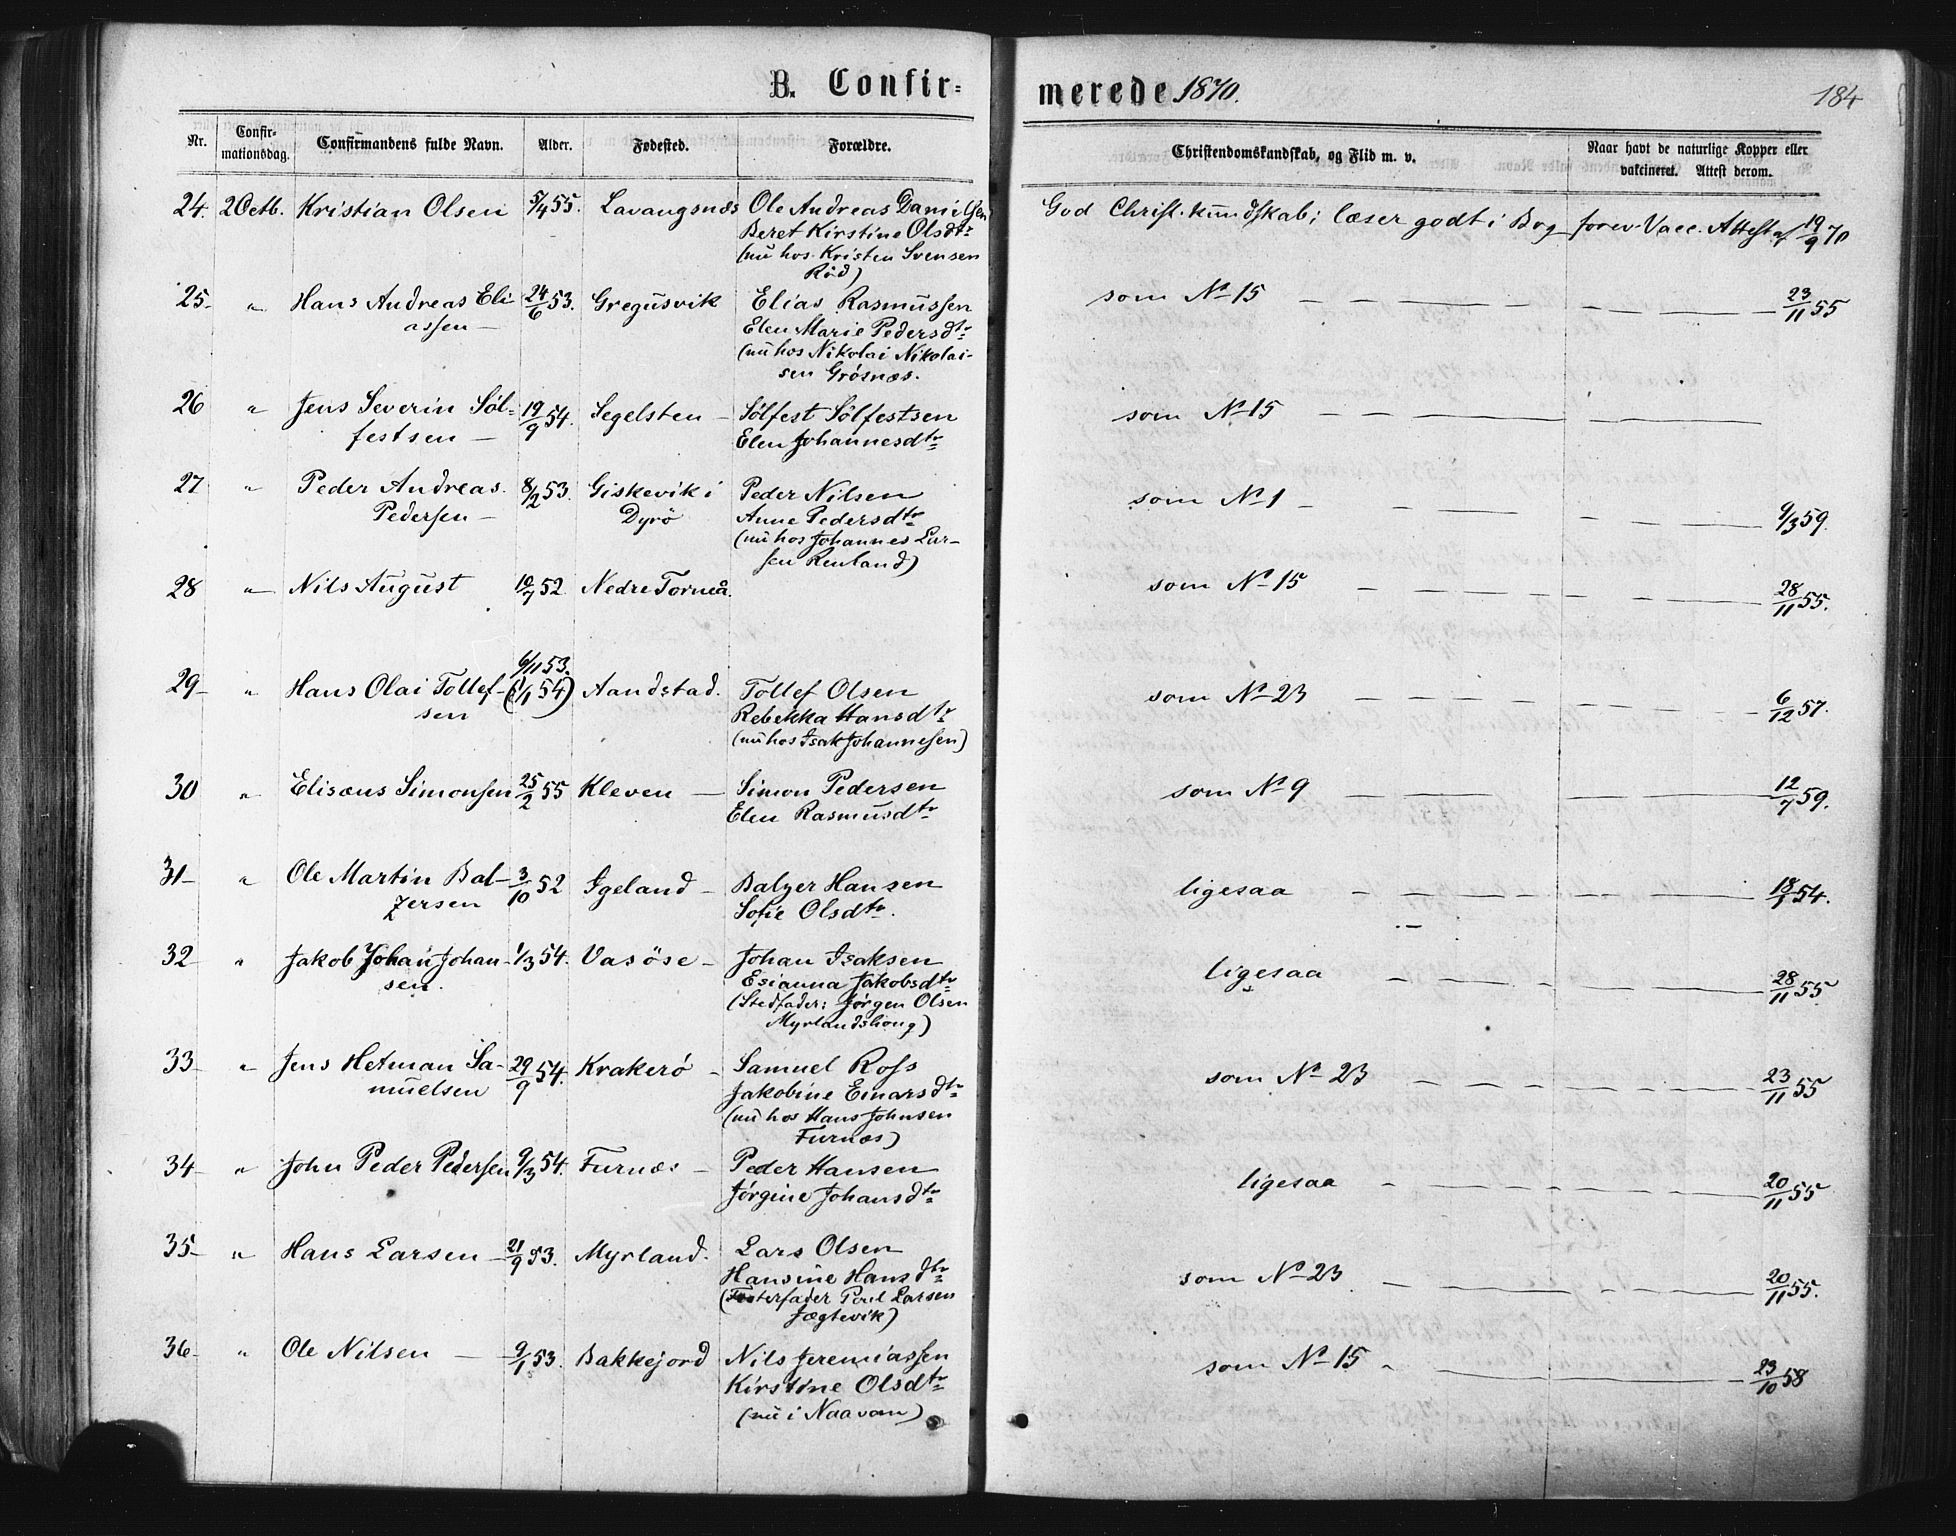 B. Confir=
merede 1870.
184
Nr.
Confir-
mationsdag.
Confirmandens fulde Navn.
Alder.
Fødested.
Forældre.
Christendomskundskab, og Flid m. v.
Naar havt de naturlige Kopper eller
vakcineret. Attest derom.
24. 2 Octb. Kristian Olsen 5/4 55. Lavangsnæs Ole Andreas Danielsen God Christ. kundskab; læser godt i Bog forev. Vacc. Attest af 19/9 70
Beret Kirstine Olsdtr
(nu hos Kristen Svensen
Rød)
25- " Hans Andreas Eli- 24/6 53. Gregusvik Elias Rasmussen som No 15 23/11 55
assen — Elen Marie Pedersdtr
(nu hos Nikolai Nikolai-
sen Grøsnæs.
26 " Jens Severin Søl- 19/9 54. Segelsten — Sølfest Sølfestsen som No 15
festsen — Elen Johannesdtr
27 " Peder Andreas 8/2 53. Giskevik i Peder Nilsen som No 1 9/3 59.
Pedersen — Dyrö Anne Pedersdtr
(nu hos Johannes Lar-
sen Renland)
28 " Nils August 10/7 52 Nedre Torneå. som No 15 28/11 55.
6/11 53.
29- " Hans Olai Tollef- (1/1 54) Aandstad. Tollef Olsen som No 23 6/12 57.
sen Rebekka Hansdtr
(nu hos Isak Johannesen)
30 " Elisæus Simonsen 25/2 55 Kleven — Simon Pedersen som No 9 12/7 59.
Elen Rasmusdtr
31- " Ole Martin Bal- 3/10 52 Igeland — Balzer Hansen ligesaa 18/1 54.
zersen Sofie Olsdtr.
32- " Jakob Johan Johan- 1/3 54. Vasöse — Johan Isaksen ligesaa 28/11 55
sen. Esianna Jakobsdtr
(Stedfader: Jørgen Olsen
Myrlandshoug)
33- " Jens Hetman Sa- 29/9 54. Krakerö — Samuel Ross som No 23 23/11 55
muelsen Jakobine Einarsdtr
(nu hos Hans Johnsen
Furnæs)
34- " John Peder Pedersen 9/3 54. Furnæs — Peder Hansen ligesaa 20/11 55
Jørgine Johansdtr
35- " Hans Larsen — 21/9 53. Myrland. Lars Olsen som No 23 20/11 55.
Hansine Hansdtr
(Fosterfader Poul Larsen
Jægtevik)
36- " Ole Nilsen — 9/1 53. Bakkejord Nils Jeremiassen som No 15 23/10 58
Kirstine Olsdtr
(nu i Naavam)